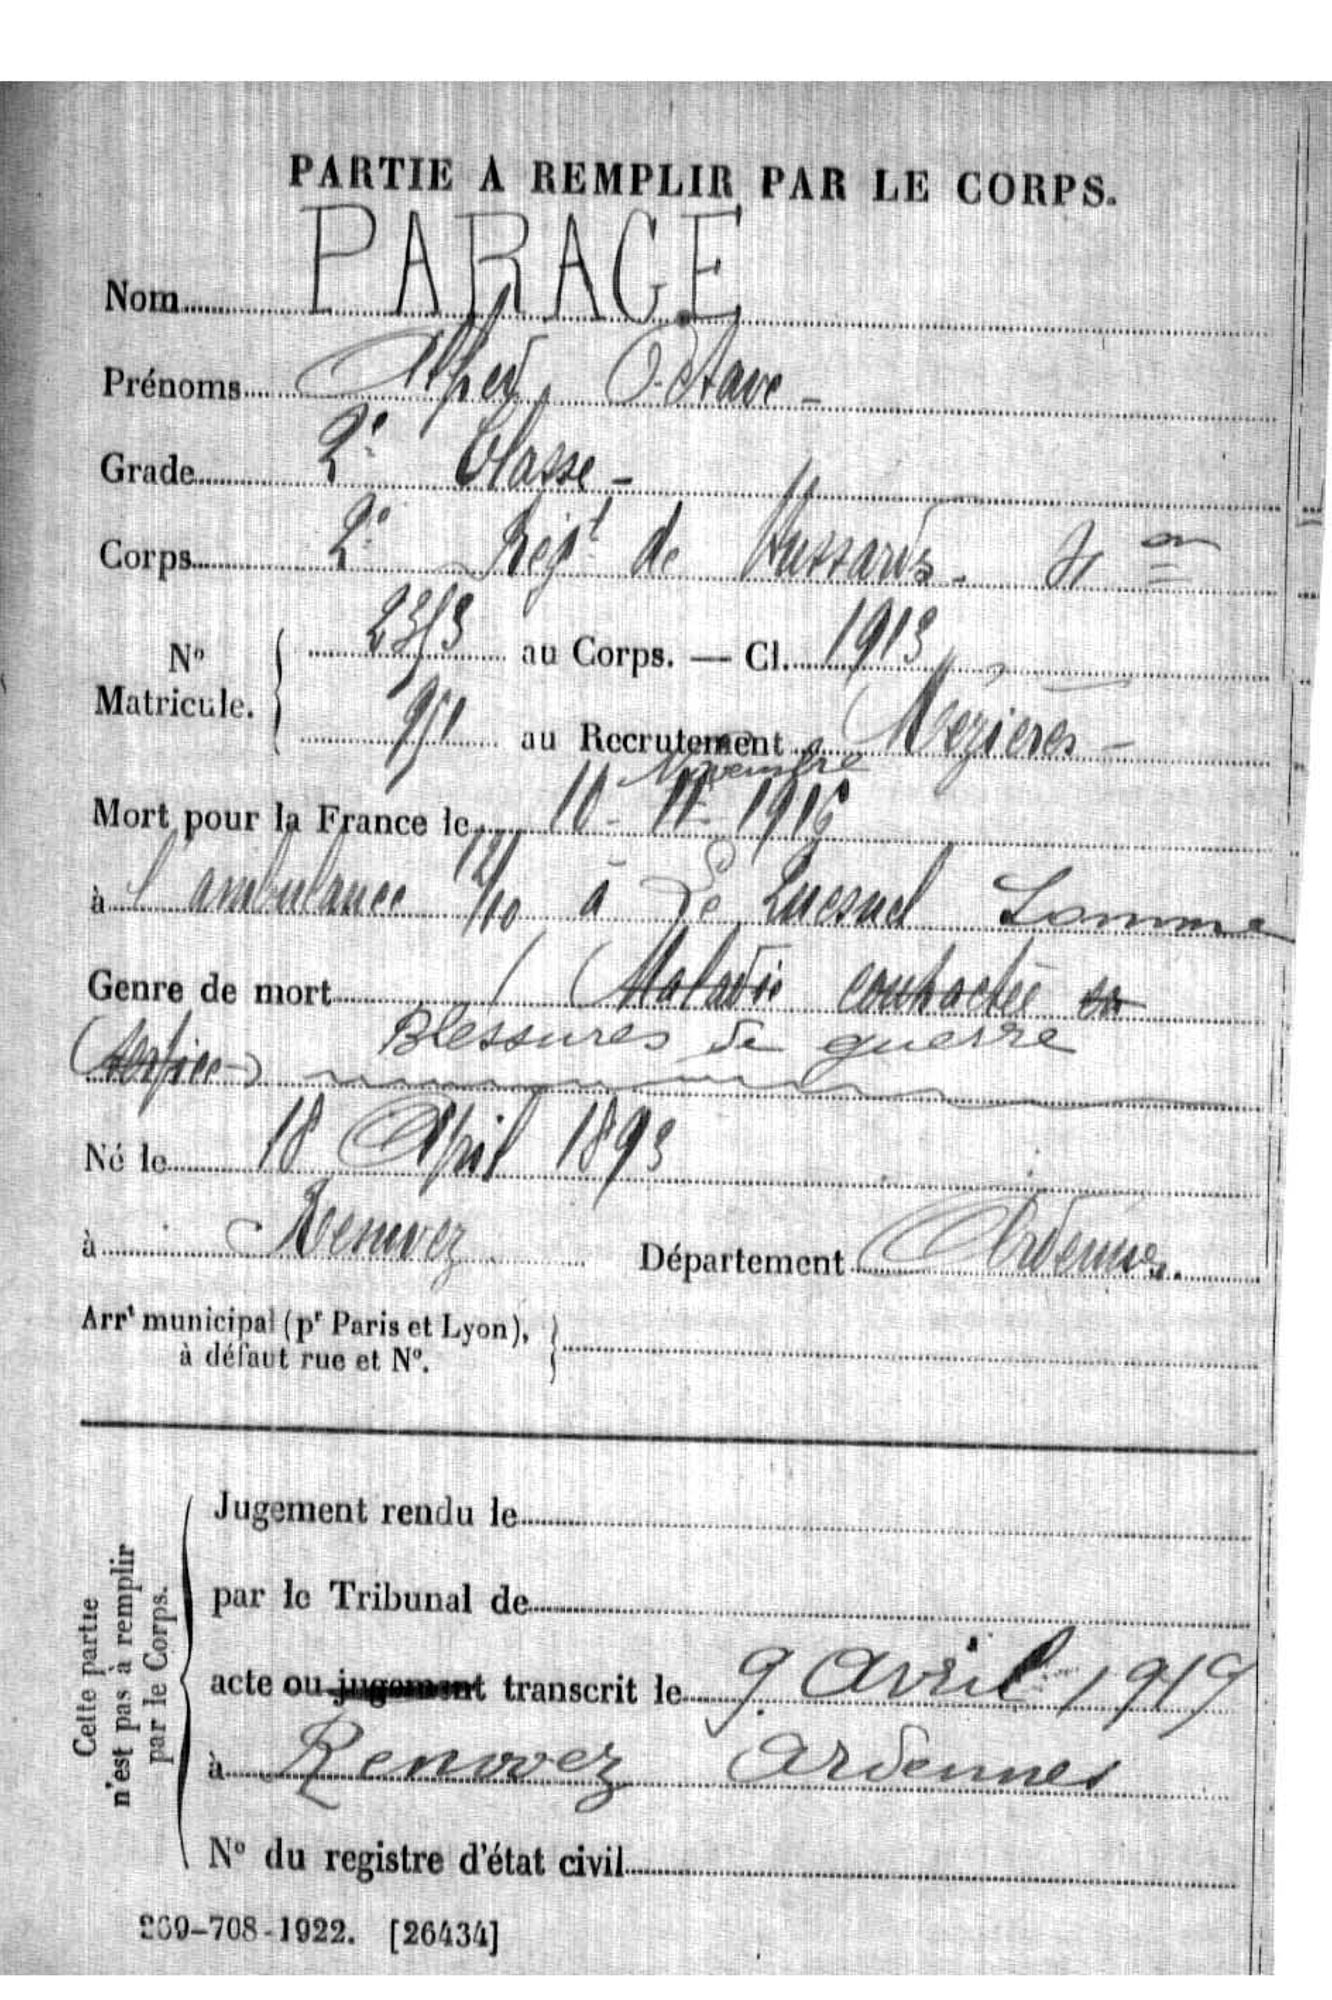 PARTIE A REMPLIR PAR LE CORPS.
Nom PARAGE
Prénoms Alfred Octave -
Grade 2e Classe -
Corps 2e Régt de Hussards -
No Matricule. au Corps. — Cl. 1913
951 au Recrutement Mézières -
Novembre
Mort pour la France le 10 - 11 - 1916
à l'ambulance 12/10 à Le Quesnel Somme
Genre de mort (Maladie contractée en
Blessures de guerre
service)
Né le 18 Avril 1893
à Renwez Département Ardennes.
Arrt municipal (pr Paris et Lyon),
à défaut rue et No.
Cette partie
n'est pas à remplir
par le Corps.
Jugement rendu le
par le Tribunal de
acte ou jugement transcrit le 9 Avril 1919
à Renwez Ardennes
No du registre d'état civil
269-708-1922. [26434]